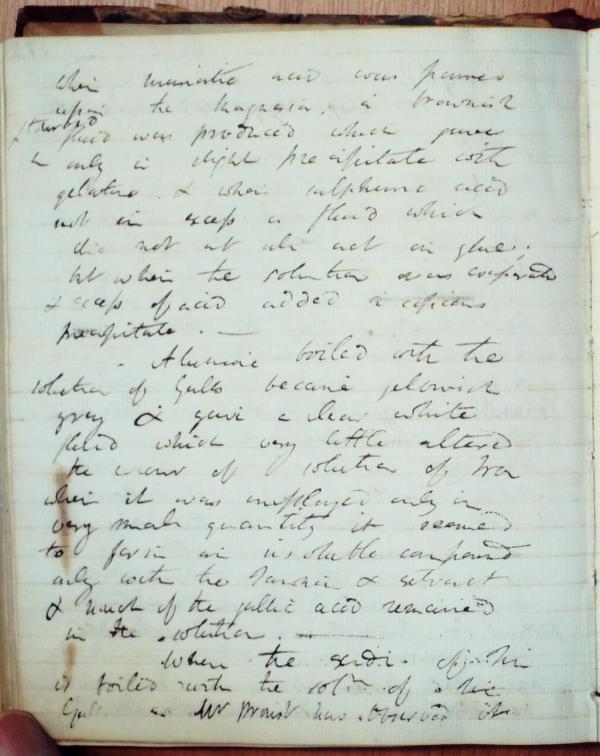 when muriatic acid was poured
upon the magnesia, a brownish
fluid was produced which gave
only a slight precipitate with
gelatine. & when sulphuric acid
not in excess a fluid which
did not at all act on glue;
but when the solution was evaporated
& excess of acid added a copious
precipitate. —
Alumine boiled with the
solution of Galls became yelowish
grey & gave a clear white
fluid which very little altered
the colour of solution of Iron
when it was employed only in
very small quantity it seemed
to form an insoluble compound
only with the Tannin & extract
& much of the gallic acid remained
in the solution. —
When the oxide of tin
is boiled with the solⁿ of
Galls as Mr Proust has observed its